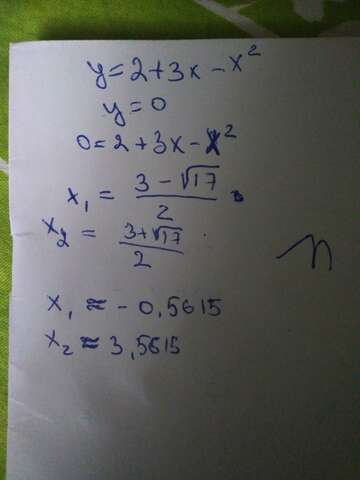 y=2+3x-x²
y=0
0=2+3x-x²
x₁ = (3-√17)/2
x₂ = (3+√17)/2
x₁ ≈ -0,5615
x₂ ≈ 3,5615